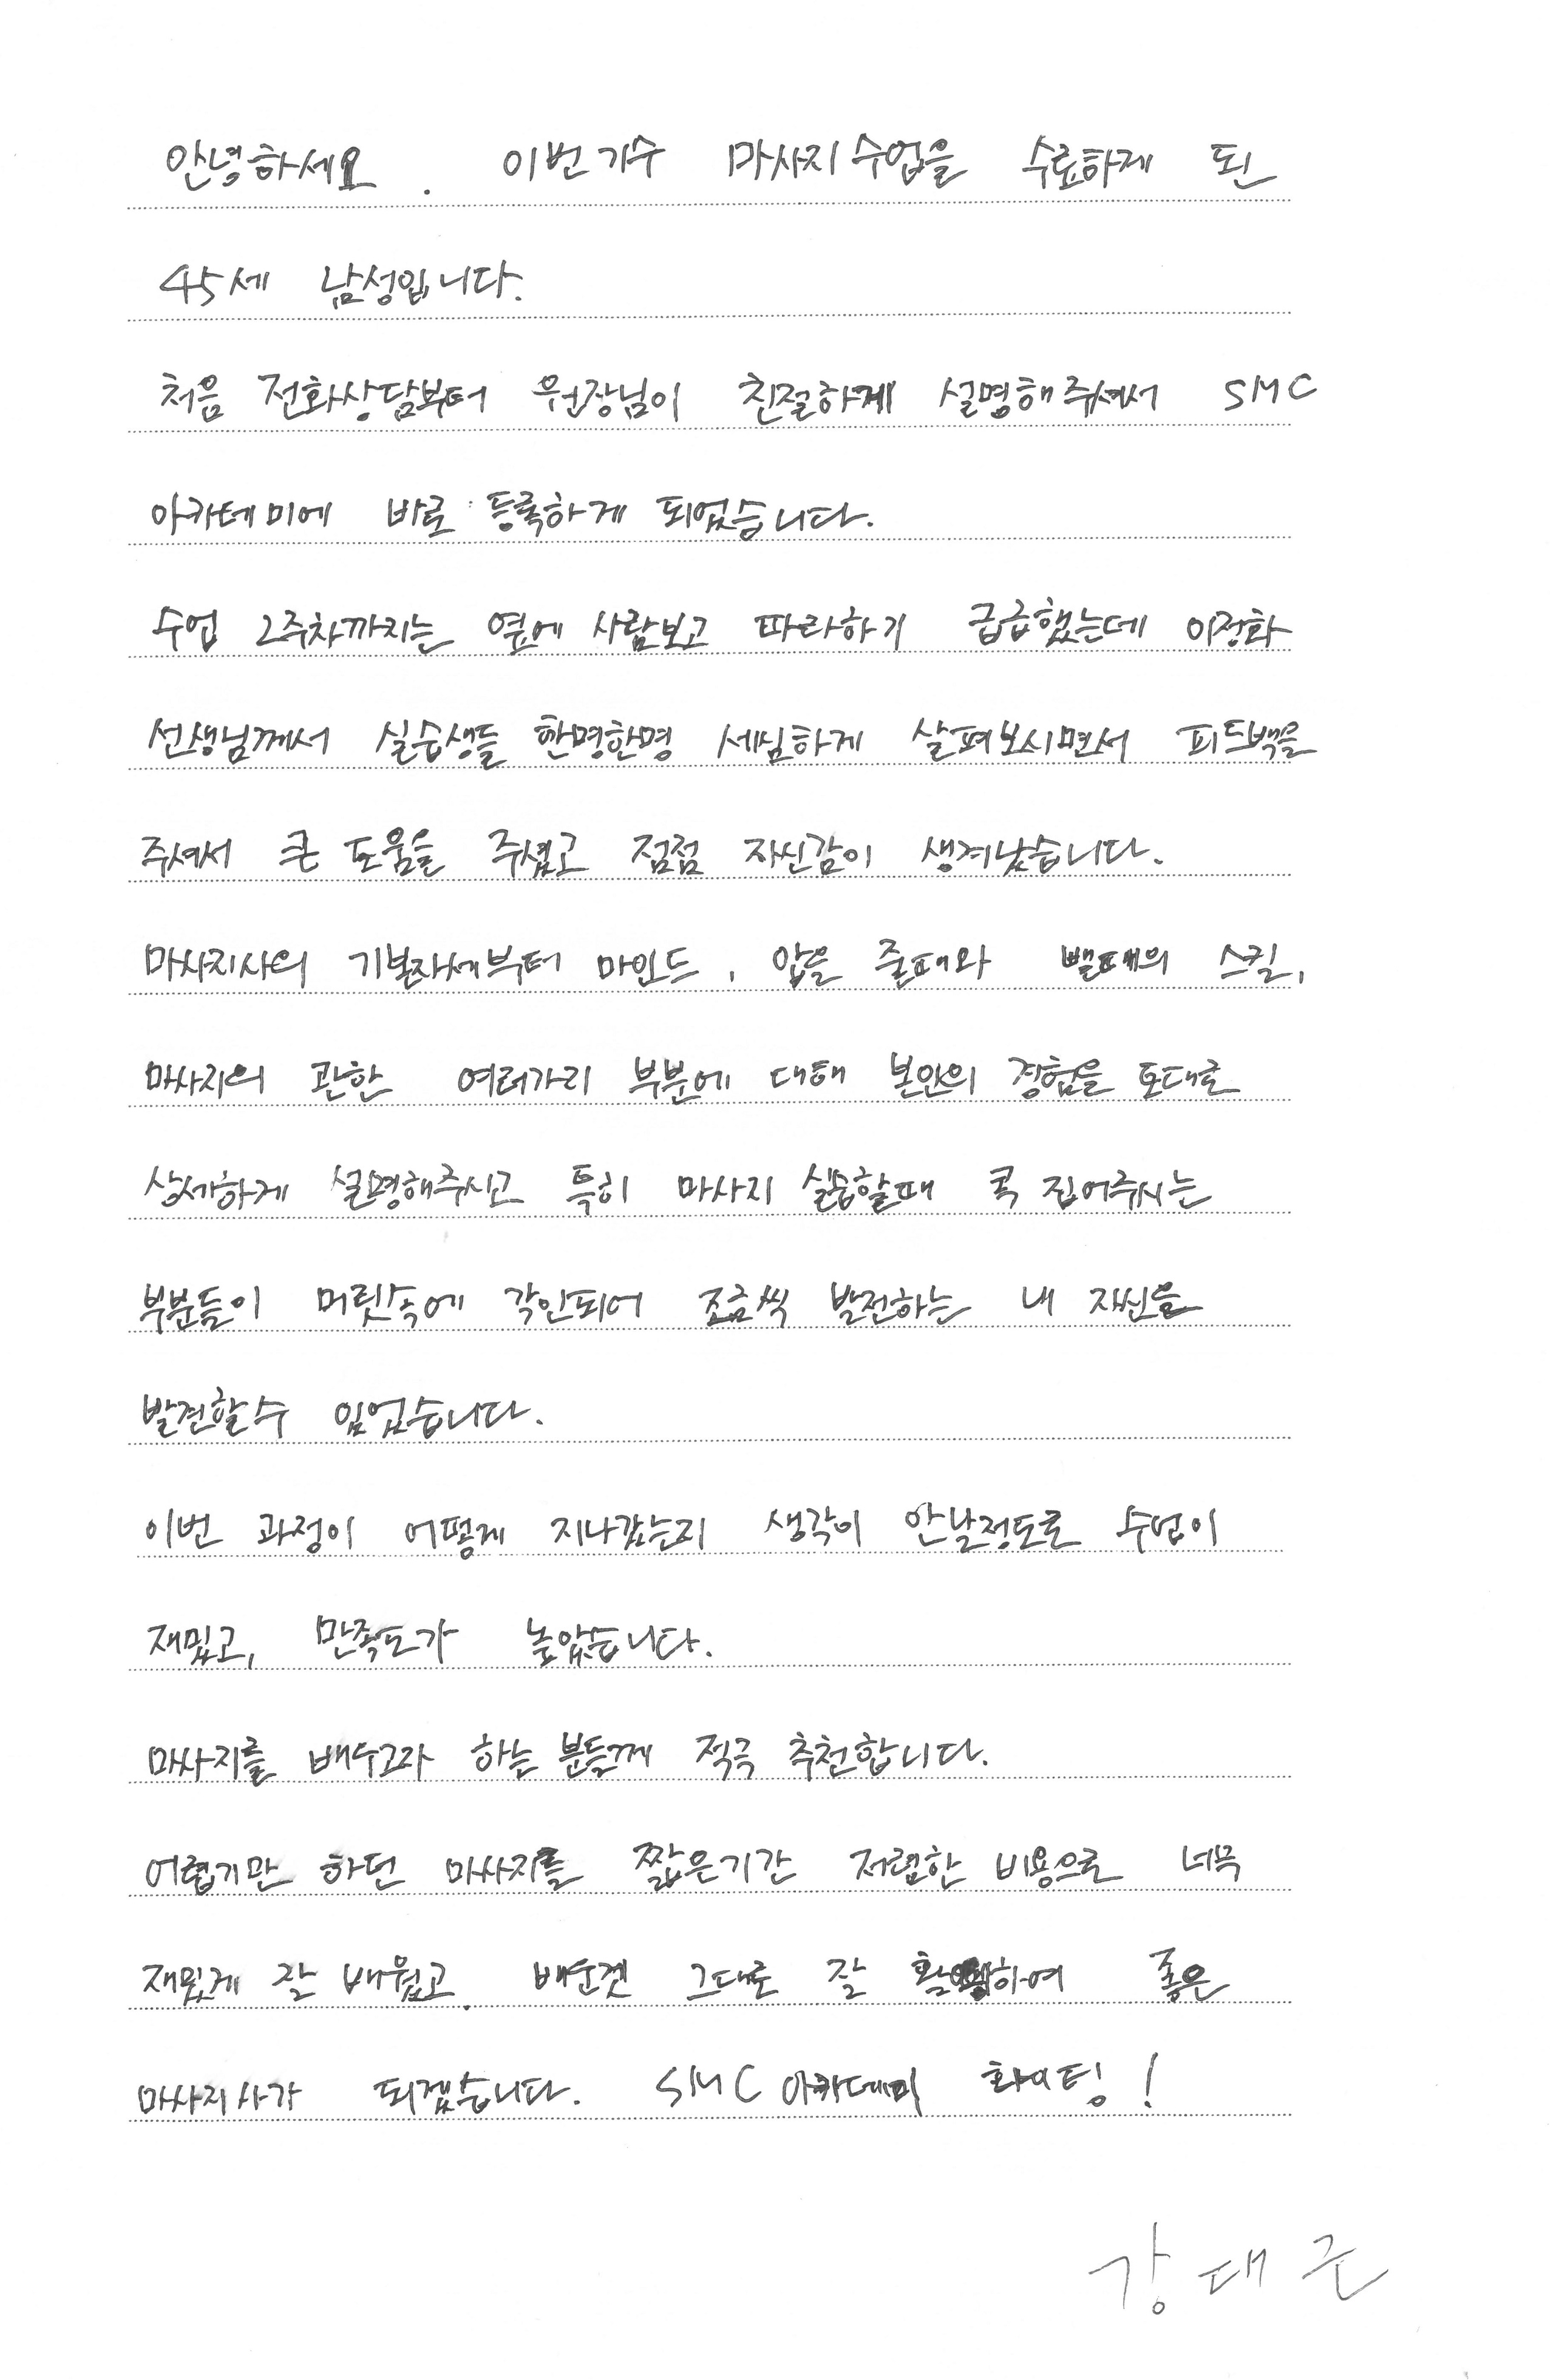 안녕하세요. 이번기수 마사지수업을 수료하게 된
45세 남성입니다.
처음 전화상담부터 원장님이 친절하게 설명해주셔서 SMC
아카데미에 바로 등록하게 되었습니다.
수업 2주차까지는 옆에 사람보고 따라하기 급급했는데 이정화
선생님께서 실습생들 한명한명 세심하게 살펴보시면서 피드백을
주셔서 큰 도움을 주셨고 점점 자신감이 생겨났습니다.
마사지사의 기본자세부터 마인드, 압을 줄때와 뺄때의 스킬,
마사지의 관한 여러가지 부분에 대해 본인의 경험을 토대로
상세하게 설명해주시고 특히 마사지 실습할때 콕 집어주시는
부분들이 머릿속에 각인되어 조금씩 발전하는 내 자신을
발견할수 있었습니다.
이번 과정이 어떻게 지나갔는지 생각이 안날정도로 수업이
재밌고, 만족도가 높았습니다.
마사지를 배우고자 하는 분들께 적극 추천합니다.
어렵기만 하던 마사지를 짧은기간 저렴한 비용으로 너무
재밌게 잘 배웠고, 배운것 그대로 잘 활용하여 좋은
마사지사가 되겠습니다. SMC 아카데미 화이팅!
강대근